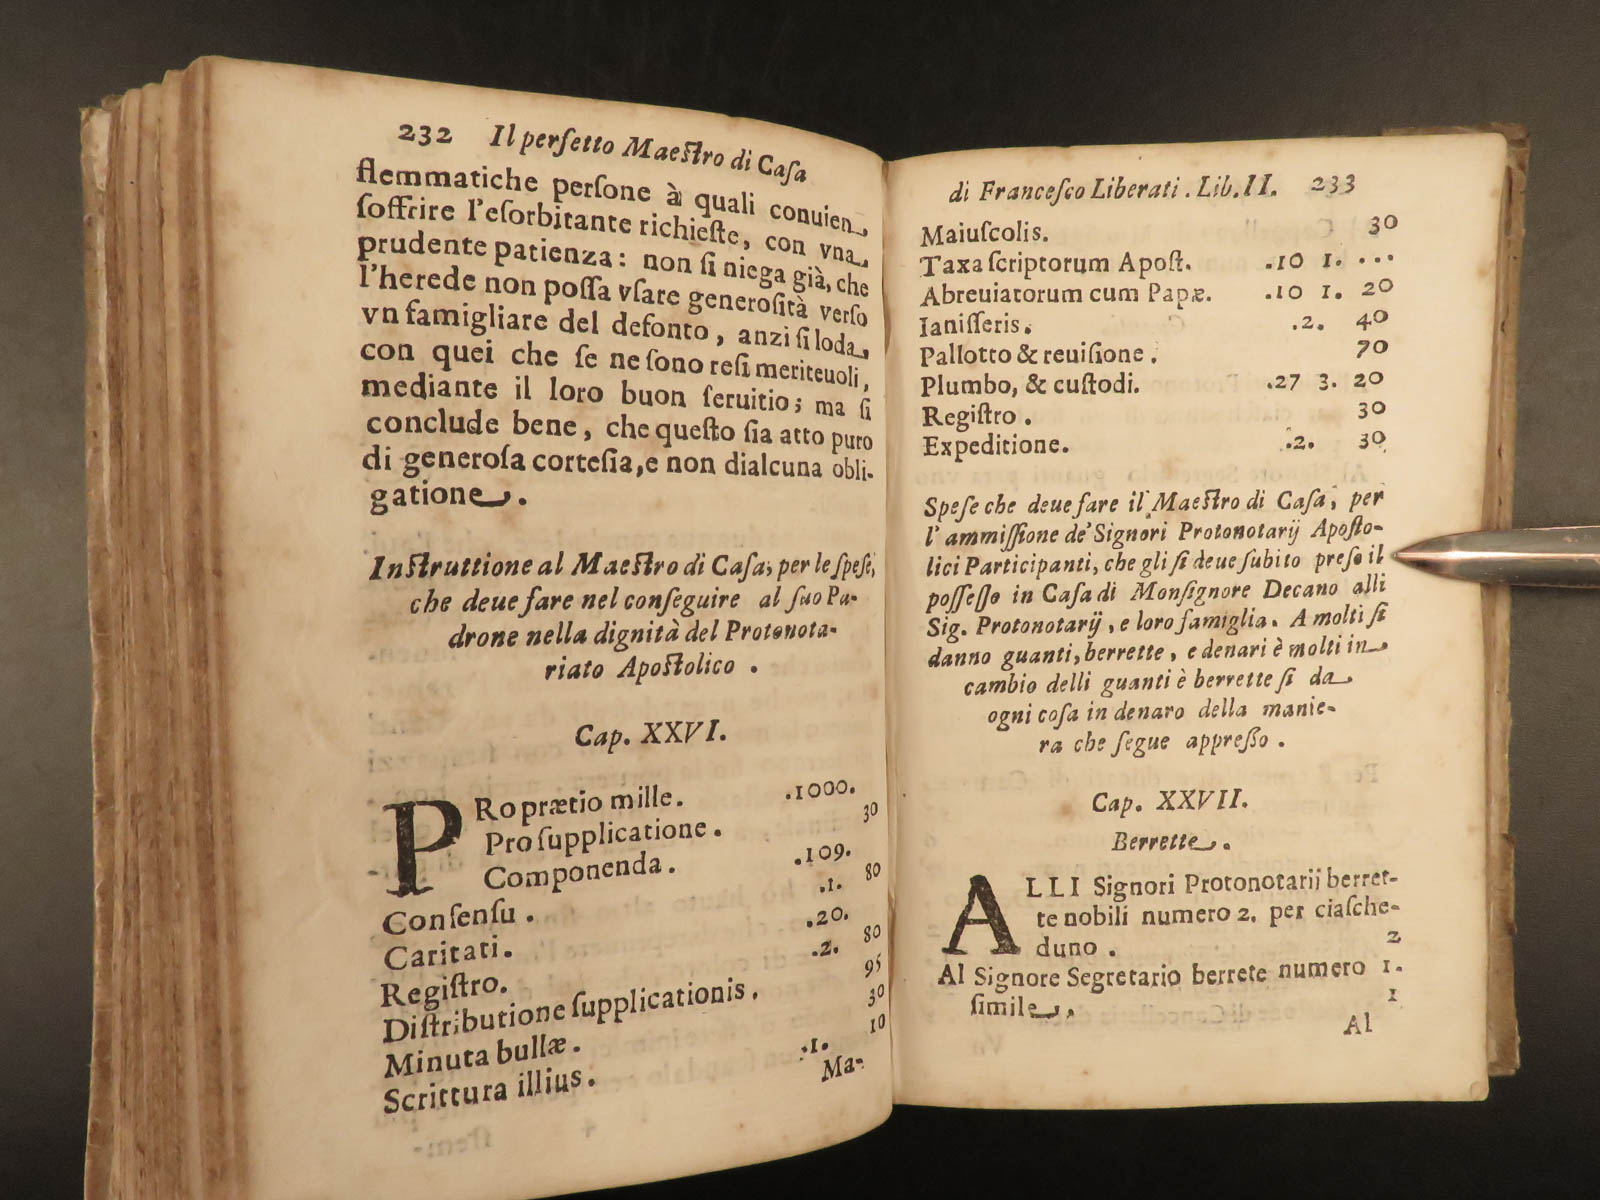 232 Il perfetto Maeſtro di Caſa
flemmatiche perſone à quali conuien
ſoffrire l'eſorbitante richieſte, con vna
prudente patienza: non ſi niega già, che
l'herede non poſſa vſare generoſità verſo
vn famigliare del defonto, anzi ſi loda
con quei che ſe ne ſono reſi meriteuoli,
mediante il loro buon ſeruitio; ma ſi
conclude bene, che queſto ſia atto puro
di generoſa corteſia, e non dialcuna obli-
gatione.
Inſtruttione al Maeſtro di Caſa, per le ſpeſe,
che deue fare nel conſeguire al ſuo Pa-
drone nella dignità del Protonota-
riato Apoſtolico .
Cap. XXVI.
PRo prætio mille. .1000.
Pro ſupplicatione . 30
Componenda . .109.
Conſenſu . .1. 80
Caritati. .20.
Regiſtro. .2. 80
Diſtributione ſupplicationis . 95
Minuta bullæ . 30
Scrittura illius. .1. 10
Ma-
di Franceſco Liberati . Lib. II. 233
Maiuſcolis. 30
Taxa ſcriptorum Apoſt. .10 1. ...
Abreuiatorum cum Papæ. .10 1. 20
Ianiſſeris. .2. 40
Pallotto & reuiſione . 70
Plumbo, & cuſtodi. .27 3. 20
Regiſtro . 30
Expeditione. .2. 30
Speſe che deue fare il Maeſtro di Caſa, per
l'ammiſſione de' Signori Protonotarij Apoſto-
lici Participanti, che gli ſi deue ſubito preſo il
poſſeſſo in Caſa di Monſignore Decano alli
Sig. Protonotarij, e loro famiglia. A molti ſi
danno guanti, berrette, e denari è molti in
cambio delli guanti è berrette ſi da
ogni coſa in denaro della manie-
ra che ſegue appreſſo .
Cap. XXVII.
Berrette .
ALLI Signori Protonotarij berret-
te nobili numero 2. per ciaſche-
duno . 2
Al Signore Segretario berrete numero 1.
ſimile . 1
Al